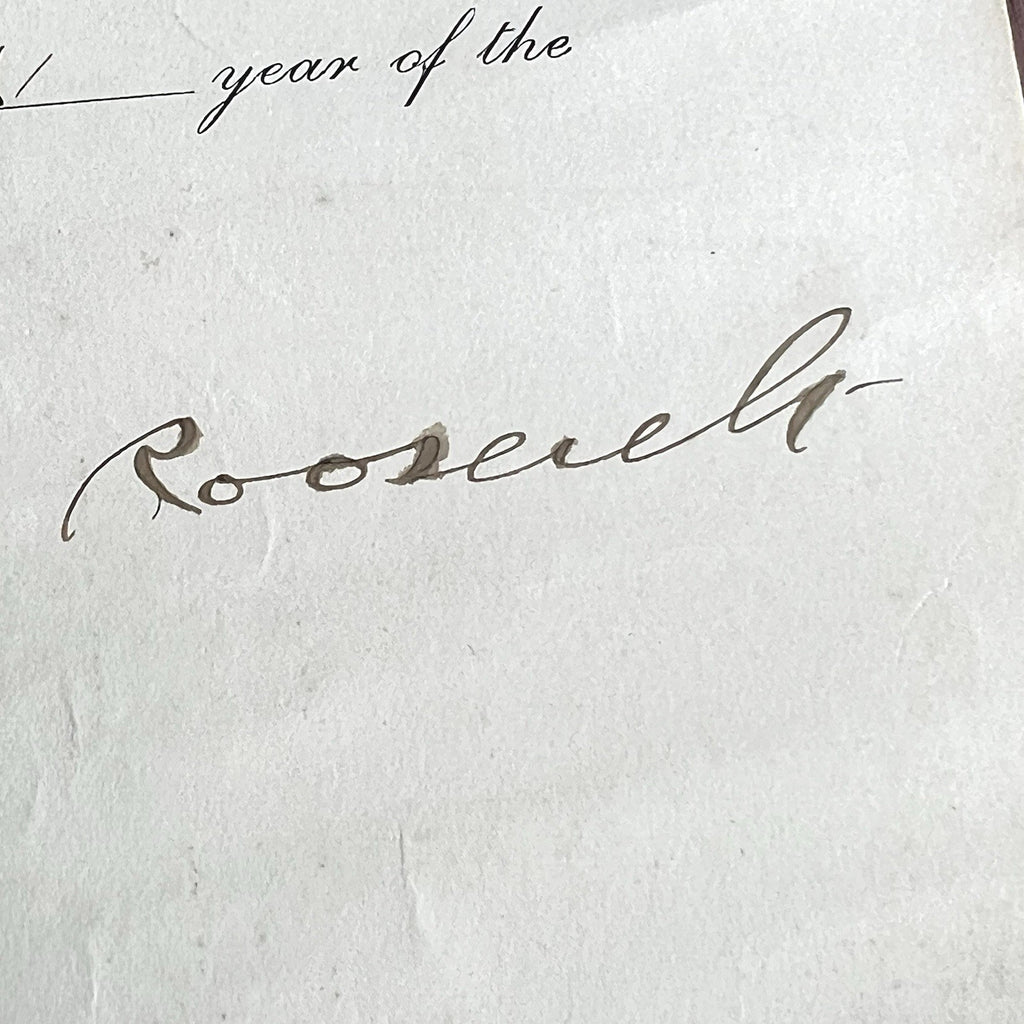 year of the
Roosevelt